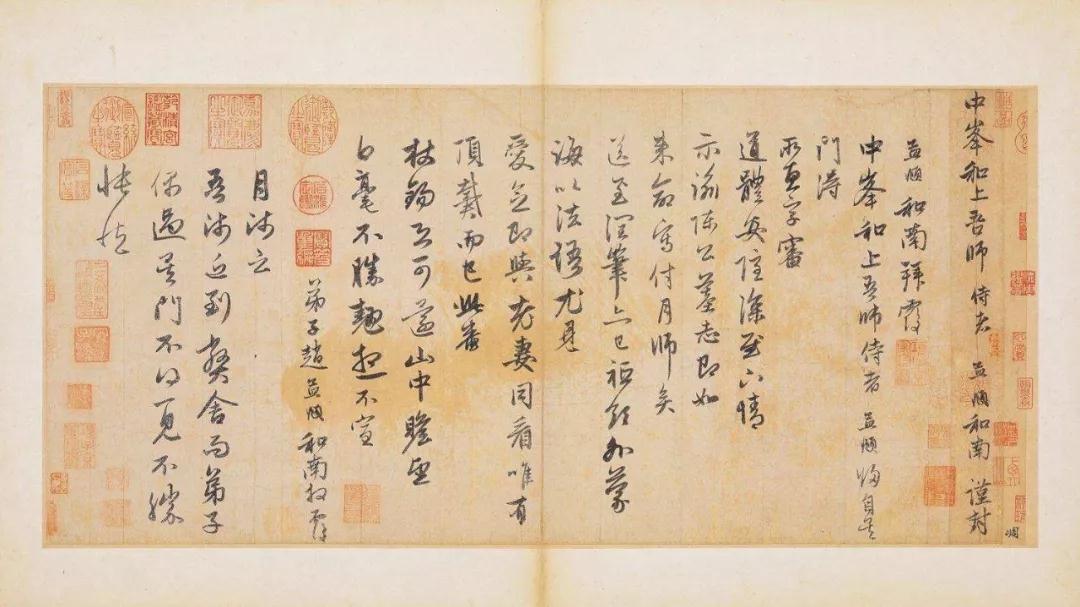 中峯和上吾師 侍者 孟頫和南 謹封
孟頫和南拜覆
中峯和上吾師侍者孟頫歸自吳
門得
所惠字審
道體安隱深慰下情
示諭陳公墓志即如
來命寫付月師矣
送至潤筆亦已祗領外蒙
誨以法語尤見
愛念即與老妻同看唯有
頂戴而已此番
杖錫又可還山中瞻望
白毫不勝馳想不宣
弟子趙孟頫和南拜覆
月師云
吾師近到弊舍而弟子
偶過吳門不得見不勝
悵